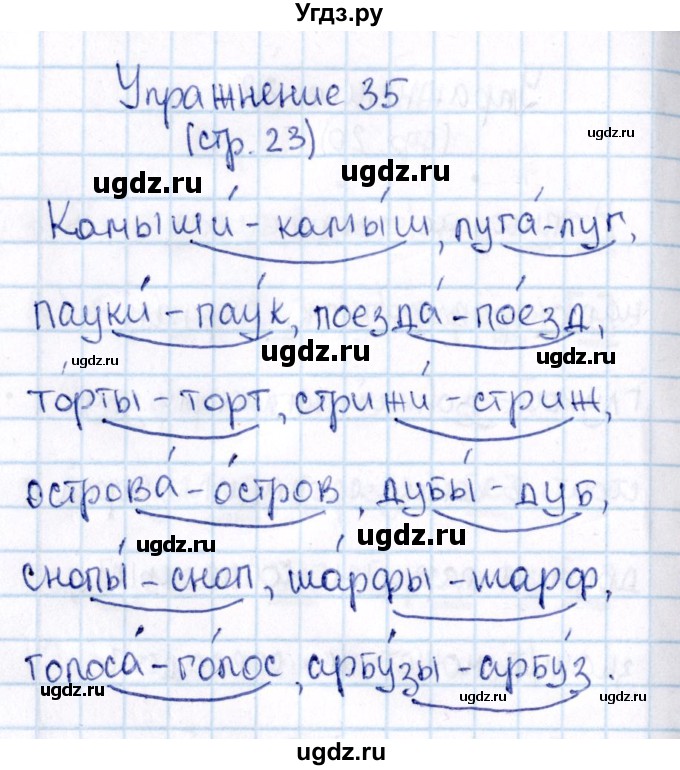 Угдз.ру
Упражнение 35
(стр. 23)
ugdz.ru
ugdz.ru
ugdz.ru
Камыши́ - камы́ш, луга́ - луг,
пауки́ - пау́к, поезда́ - по́езд,
ugdz.ru
ugdz.ru
ugdz.ru
то́рты - торт, стрижи́ - стриж,
острова́ - о́стров, дубы́ - дуб,
ugdz.ru
ugdz.ru
снопы́ - сноп, ша́рфы - шарф,
голоса́ - го́лос, арбу́зы - арбу́з.
ugdz.ru
ugdz.ru
ugdz.ru